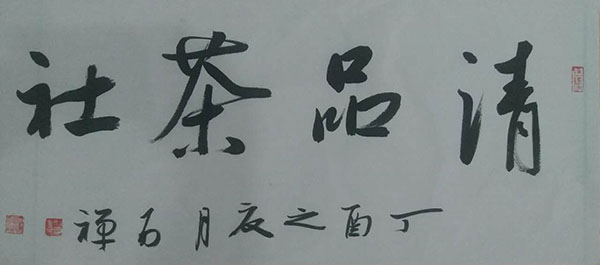 清品茶社
丁酉之夏月石禅